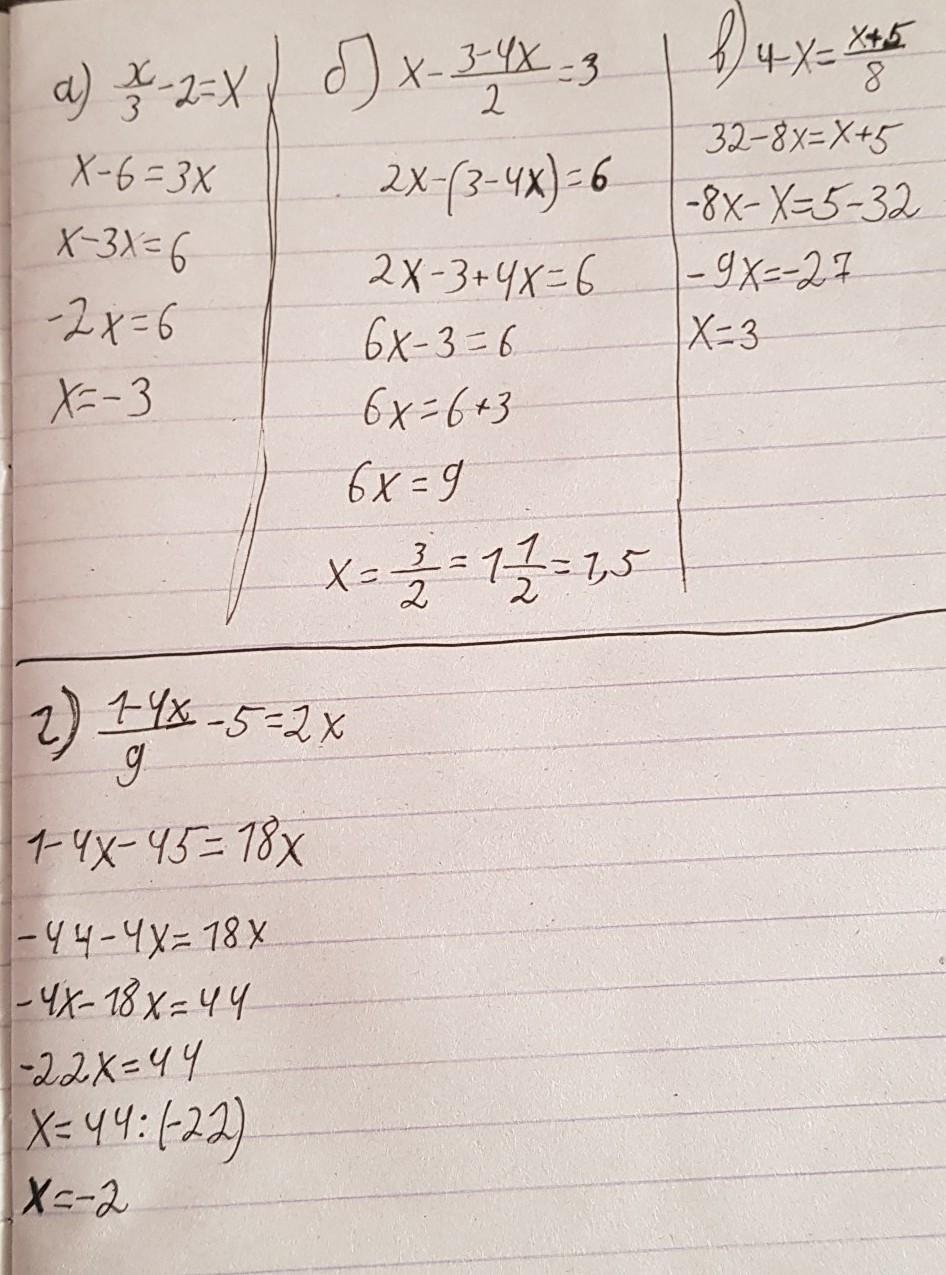 а) x/3 - 2 = x
x - 6 = 3x
x - 3x = 6
-2x = 6
x = -3
б) x - (3-4x)/2 = 3
2x - (3 - 4x) = 6
2x - 3 + 4x = 6
6x - 3 = 6
6x = 6 + 3
6x = 9
x = 3/2 = 1 1/2 = 1,5
в) 4 - x = (x+5)/8
32 - 8x = x + 5
-8x - x = 5 - 32
-9x = -27
x = 3
г) (1-4x)/9 - 5 = 2x
1 - 4x - 45 = 18x
-44 - 4x = 18x
-4x - 18x = 44
-22x = 44
x = 44 : (-22)
x = -2